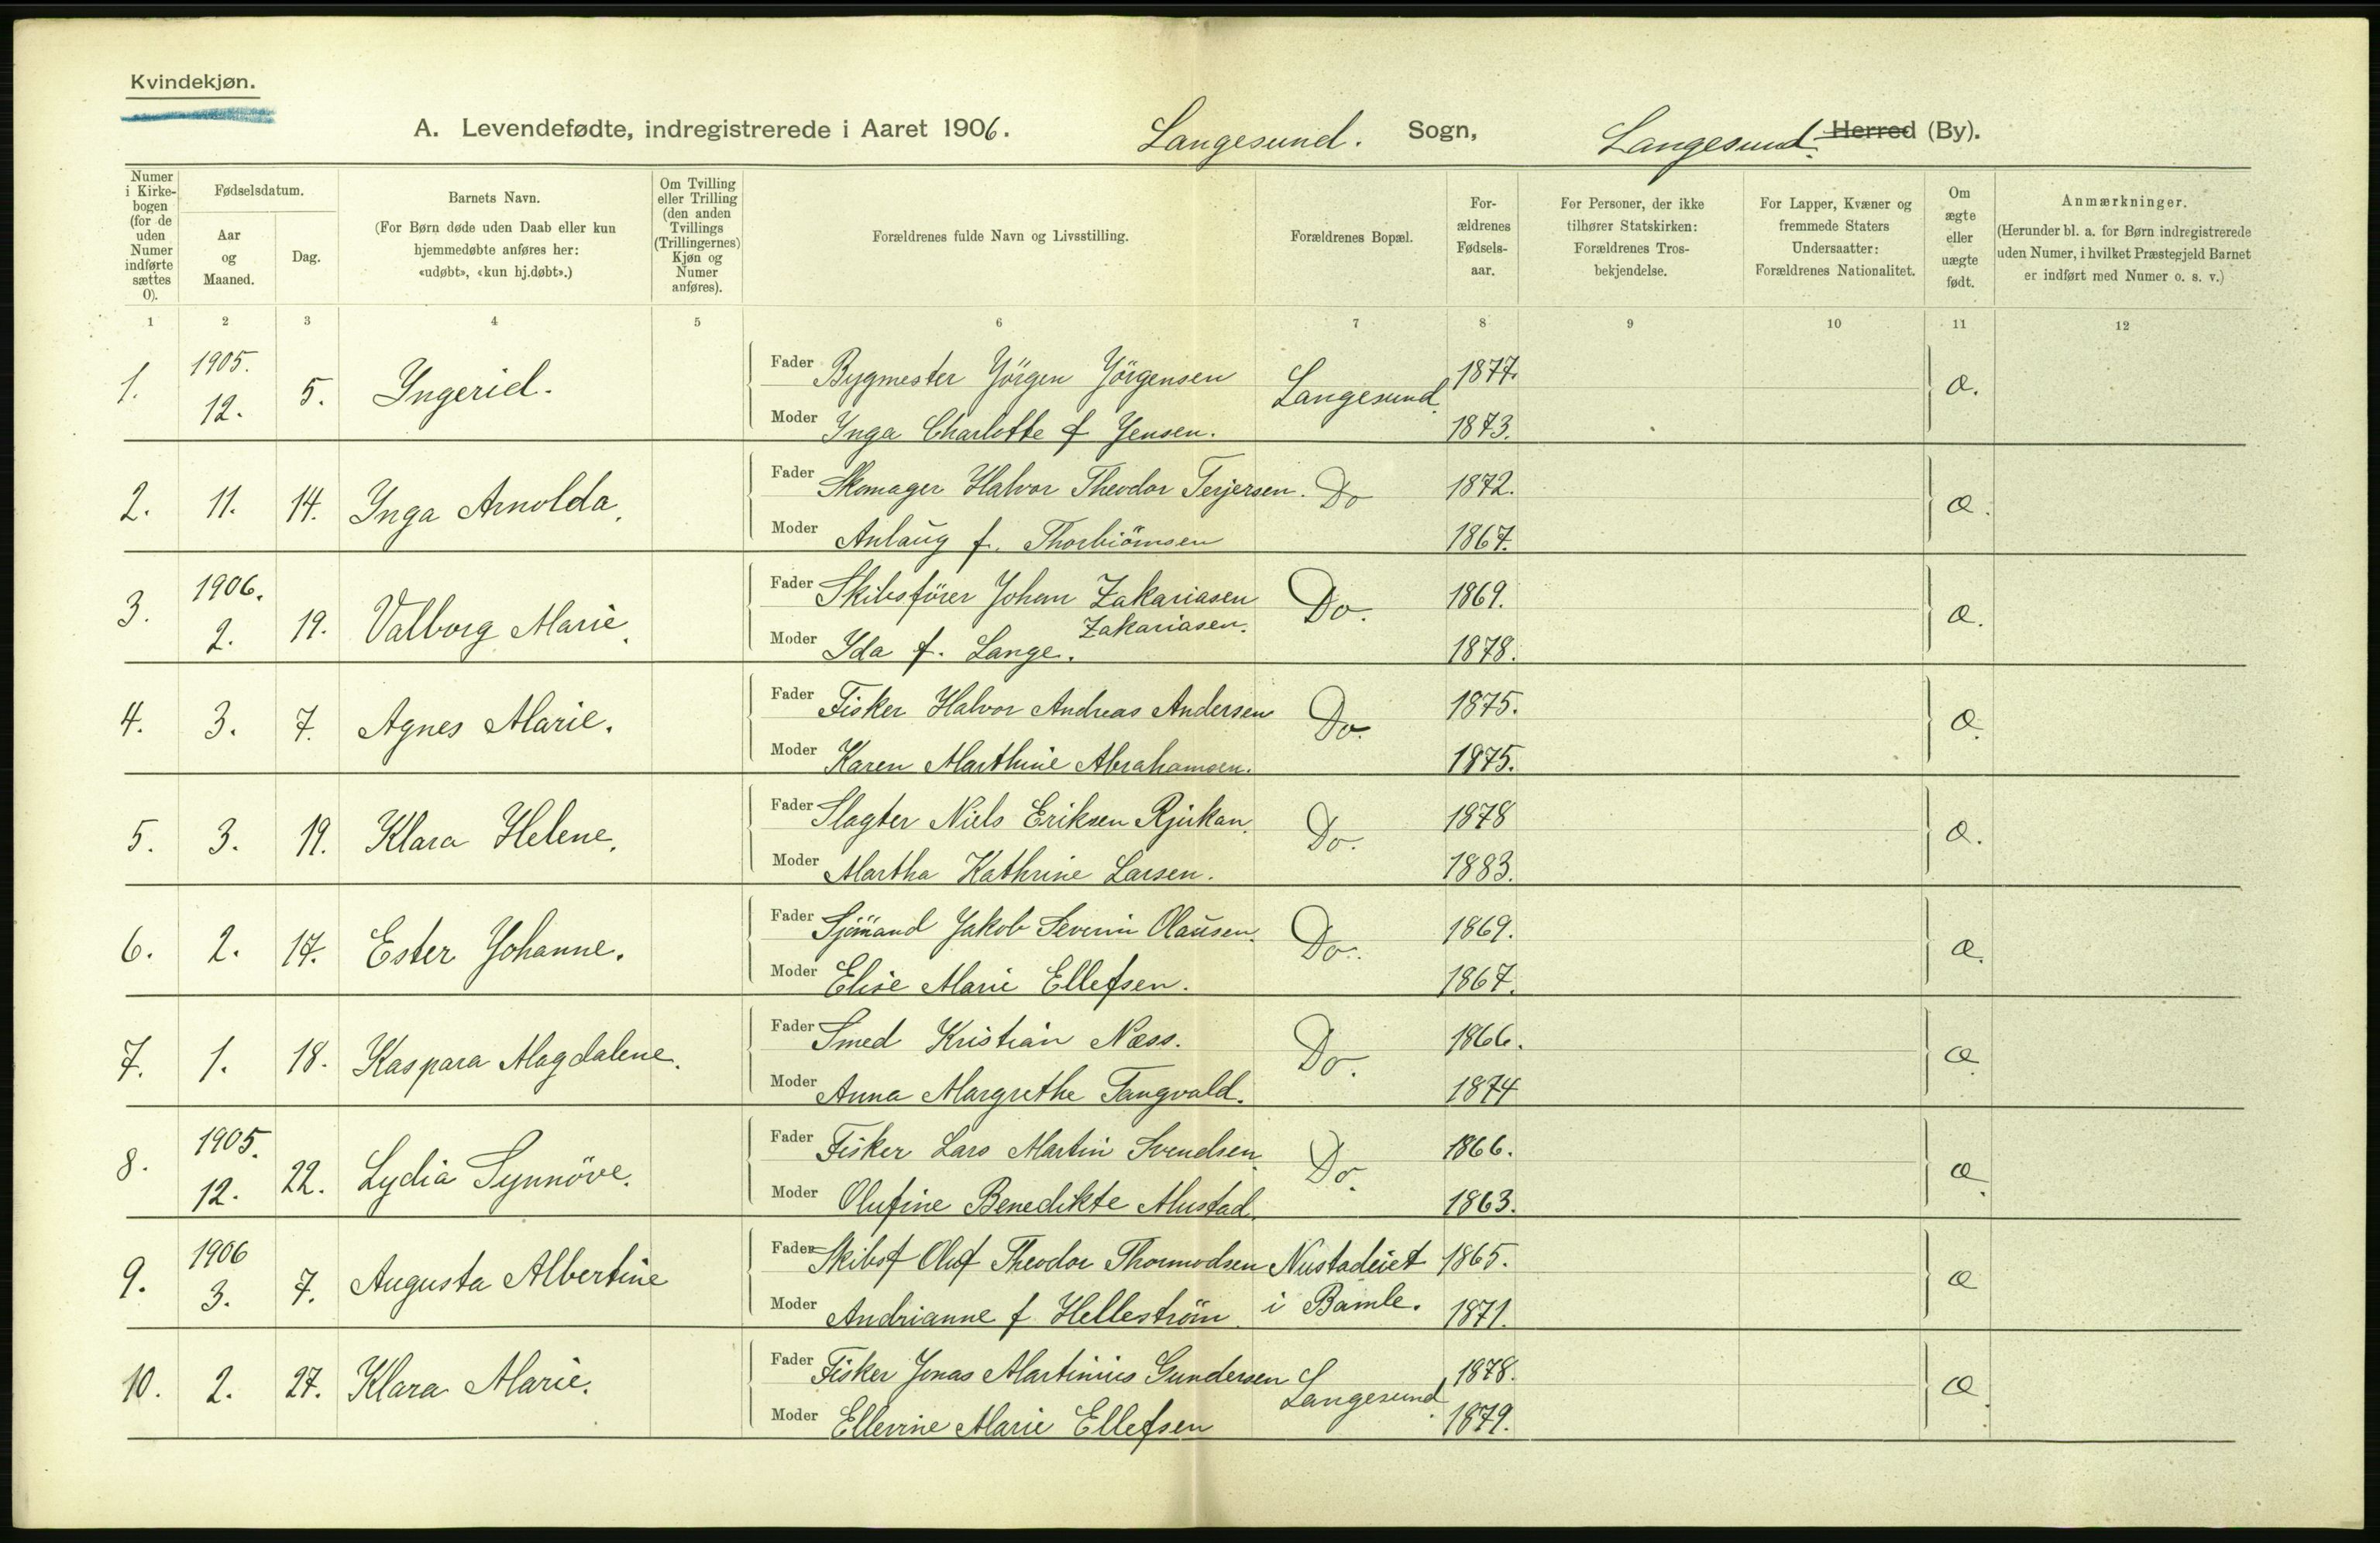 Kvindekjøn.
A. Levendefødte, indregistrerede i Aaret 1906. Langesund. Sogn, Langesund. Herred (By).
Numer i Kirkebogen (for de uden Numer indførte sættes 0).
Fødselsdatum.
Aar og Maaned.
Dag.
Barnets Navn.
(For Børn døde uden Daab eller kun hjemmedøbte anføres her: «udøbt», «kun hj.døbt».)
Om Tvilling eller Trilling (den anden Tvillings (Trillingernes) Kjøn og Numer anføres).
Forældrenes fulde Navn og Livsstilling.
Forældrenes Bopæl.
For-ældrenes Fødsels-aar.
For Personer, der ikke tilhører Statskirken: Forældrenes Tros-bekjendelse.
For Lapper, Kvæner og fremmede Staters Undersaatter: Forældrenes Nationalitet.
Om ægte eller uægte født.
Anmærkninger.
(Herunder bl. a. for Børn indregistrerede uden Numer, i hvilket Præstegjeld Barnet er indført med Numer o. s. v.)
1 2 3 4 5 6 7 8 9 10 11 12
1. 1905. 12. 5. Ingerid. Fader Bygmester Jörgen Jörgensen Langesund. 1877. æ.
Moder Inga Charlotte f Jensen. 1873.
2. 11. 14. Inga Arnolda. Fader Skomager Halvor Theodor Terjersen. Do 1872. æ.
Moder Anlaug f. Thorbiörnsen 1867.
3. 1906. 2. 19. Valborg Marie. Fader Skibsförer Johan Zakariasen Do. 1869. æ.
Zakariasen.
Moder Ida f. Lange. 1878.
4. 3. 7. Agnes Marie. Fader Fisker Halvor Andreas Andersen Do. 1875. æ.
Moder Karen Marthine Abrahamsen. 1875.
5. 3. 19. Klara Helene. Fader Slagter Niels Eriksen Rjukan. Do. 1878 æ.
Moder Martha Kathrine Larsen. 1883.
6. 2. 17. Ester Johanne. Fader Sjömand Jakob Severin Olausen. Do. 1869. æ.
Moder Elise Marie Ellefsen. 1867.
7. 1. 18. Kaspara Magdalene. Fader Smed Kristian Næss. Do. 1866. æ.
Moder Anna Margrethe Tangvald. 1874
8. 1905. 12. 22. Lydia Synnöve. Fader Fisker Lars Martin Svendsen. Do. 1866. æ.
Moder Olufine Benedikte Mustad. 1863.
9. 1906 3. 7. Augusta Albertine Fader Skibsf Oluf Theodor Thormodsen 1865. æ
Moder Andrianne f. Helleström. i Bamle. 1871.
10. 2. 27. Klara Marie. Fader Fisker Jonas Martinius Gundersen Langesund. 1878. æ.
Moder Ellevine Marie Ellefsen 1879.